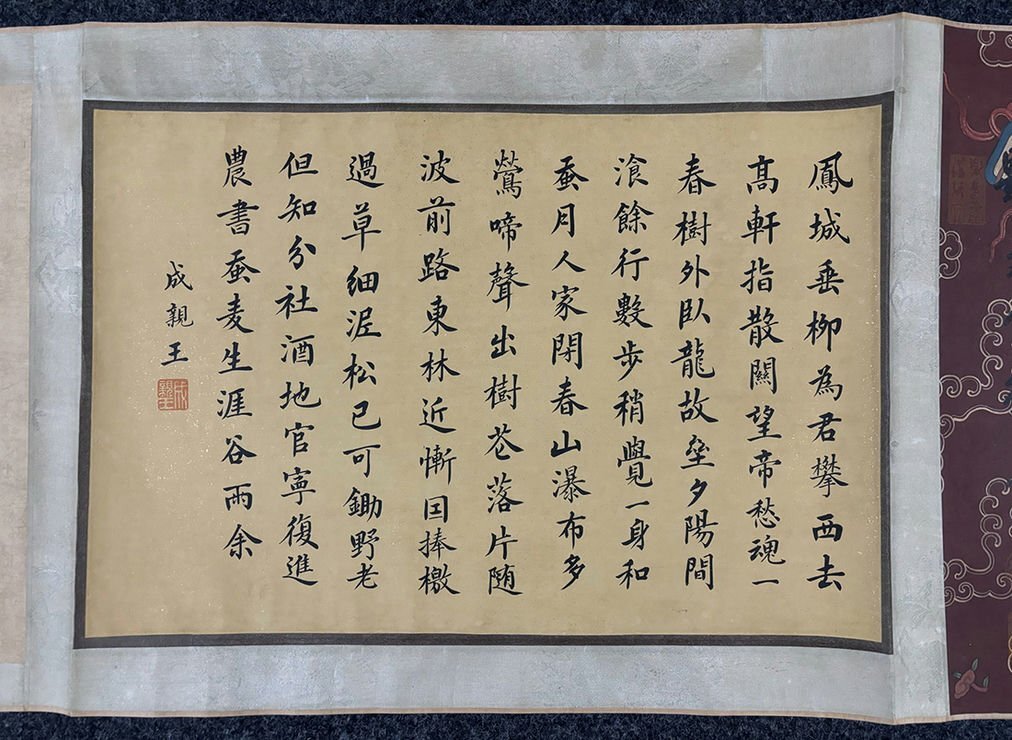 鳳城垂栁為君攀西去
髙軒指散關望帝愁魂一
春樹外臥龍故壘夕陽間
湌餘行數步稍覺一身和
蚕月人家閉春山瀑布多
鶯啼聲出樹花落片随
波前路東林近慚囙捧檄
過草細泥松已可鋤野老
但知分社酒地官寧復進
農書蚕麦生涯谷雨余
成親王
成親王